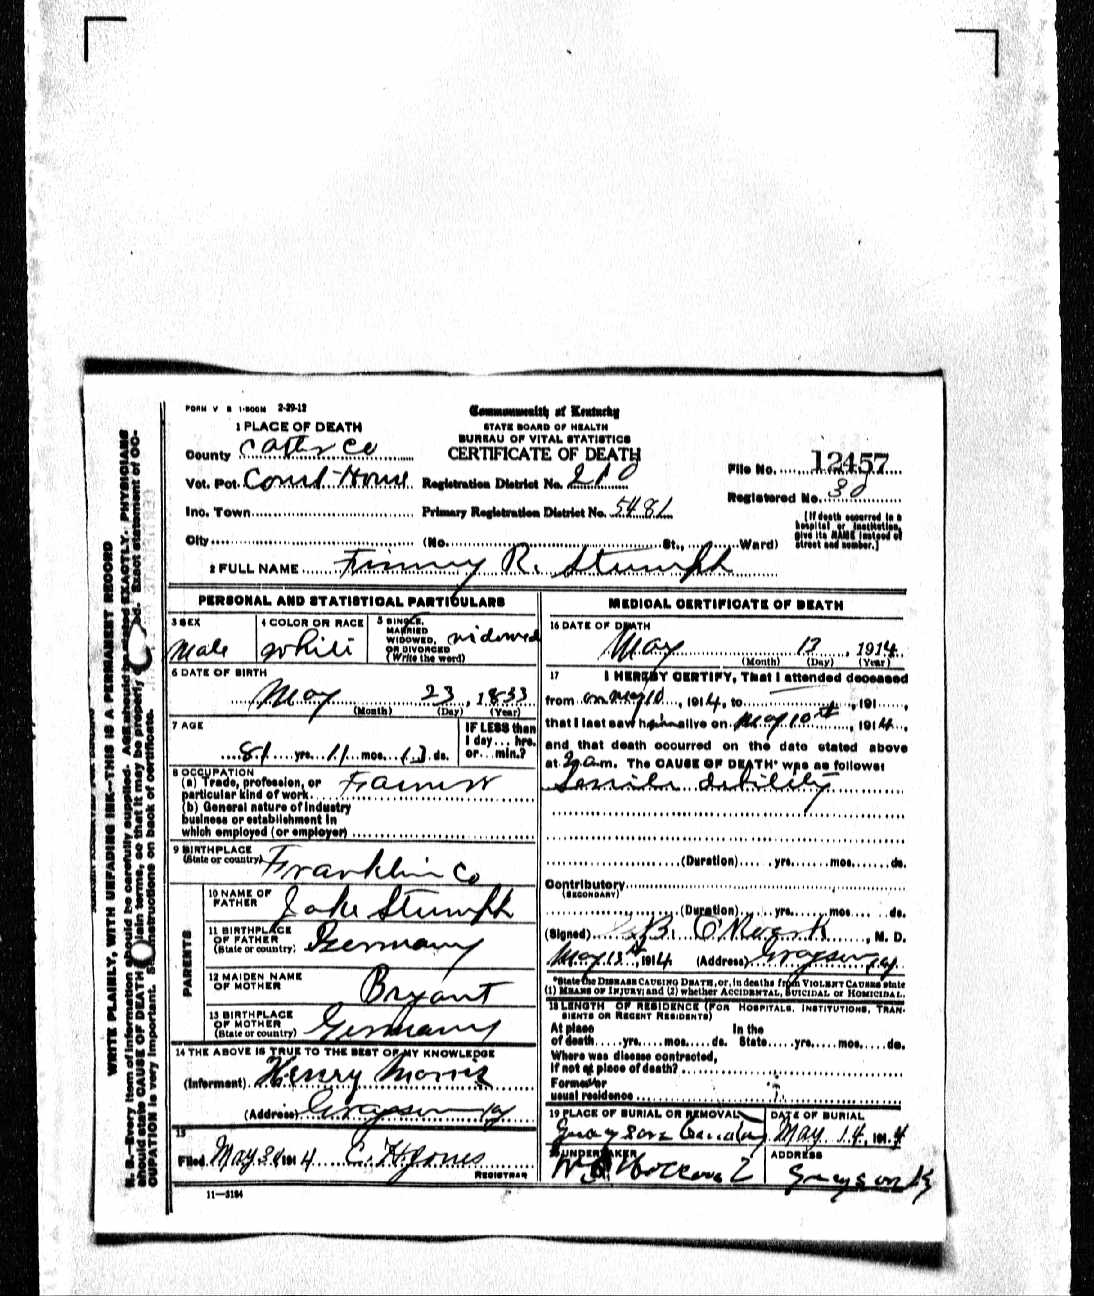 FORM V S 1-500M 2-29-12
Commonwealth of Kentucky
STATE BOARD OF HEALTH
BUREAU OF VITAL STATISTICS
CERTIFICATE OF DEATH
1 PLACE OF DEATH
County Carter Co
Vot. Pct. Court House Registration District No. 210
Inc. Town Primary Registration District No. 5481
City (No. St., Ward)
File No. 12457
Registered No. 30
[If death occurred in a
hospital or institution,
give its NAME instead of
street and number.]
2 FULL NAME Finney R. Stumph
PERSONAL AND STATISTICAL PARTICULARS
3 SEX
Male
4 COLOR OR RACE
White
5 SINGLE,
MARRIED
WIDOWED,
OR DIVORCED
(Write the word)
widowed
6 DATE OF BIRTH
May 23, 1833
(Month) (Day) (Year)
7 AGE
81 yrs. 11 mos. 13 ds.
IF LESS than
1 day... hrs.
or... min.?
8 OCCUPATION
(a) Trade, profession, or
particular kind of work Farmer
(b) General nature of industry
business or establishment in
which employed (or employer)
9 BIRTHPLACE
(State or country) Franklin Co
PARENTS
10 NAME OF
FATHER Jake Stumph
11 BIRTHPLACE
OF FATHER
(State or country) Germany
12 MAIDEN NAME
OF MOTHER Bryant
13 BIRTHPLACE
OF MOTHER
(State or country) Germany
14 THE ABOVE IS TRUE TO THE BEST OF MY KNOWLEDGE
(Informant) Henry Morris
(Address) Grayson Ky
15
Filed May 30 1914 C. H. Jones
REGISTRAR
11—3184
MEDICAL CERTIFICATE OF DEATH
16 DATE OF DEATH
May 13, 1914
(Month) (Day) (Year)
17 I HEREBY CERTIFY, That I attended deceased
from on May 10, 1914, to , 191 ,
that I last saw him alive on May 10th, 1914,
and that death occurred on the date stated above
at 2 a.m. The CAUSE OF DEATH* was as follows:
Senile debility
(Duration) yrs. mos. ds.
Contributory
(SECONDARY)
(Duration) yrs. mos. ds.
(Signed) , M. D.
May 13th, 1914 (Address) Grayson Ky
*State the DISEASE CAUSING DEATH, or, in deaths from VIOLENT CAUSES state
(1) MEANS OF INJURY; and (2) whether ACCIDENTAL, SUICIDAL or HOMICIDAL.
18 LENGTH OF RESIDENCE (FOR HOSPITALS, INSTITUTIONS, TRAN-
SIENTS OR RECENT RESIDENTS)
At place In the
of death yrs. mos. ds. State yrs. mos. ds.
Where was disease contracted,
If not at place of death?
Former or
usual residence
19 PLACE OF BURIAL OR REMOVAL
Grayson
DATE OF BURIAL
May 14, 1914
20 UNDERTAKER
ADDRESS
Grayson Ky
WRITE PLAINLY, WITH UNFADING INK—THIS IS A PERMANENT RECORD
N. B.—Every item of information should be carefully supplied. AGE should be stated EXACTLY. PHYSICIANS
should state CAUSE OF DEATH in plain terms, so that it may be properly classified. Exact statement of OC-
CUPATION is very important. See instructions on back of certificate.